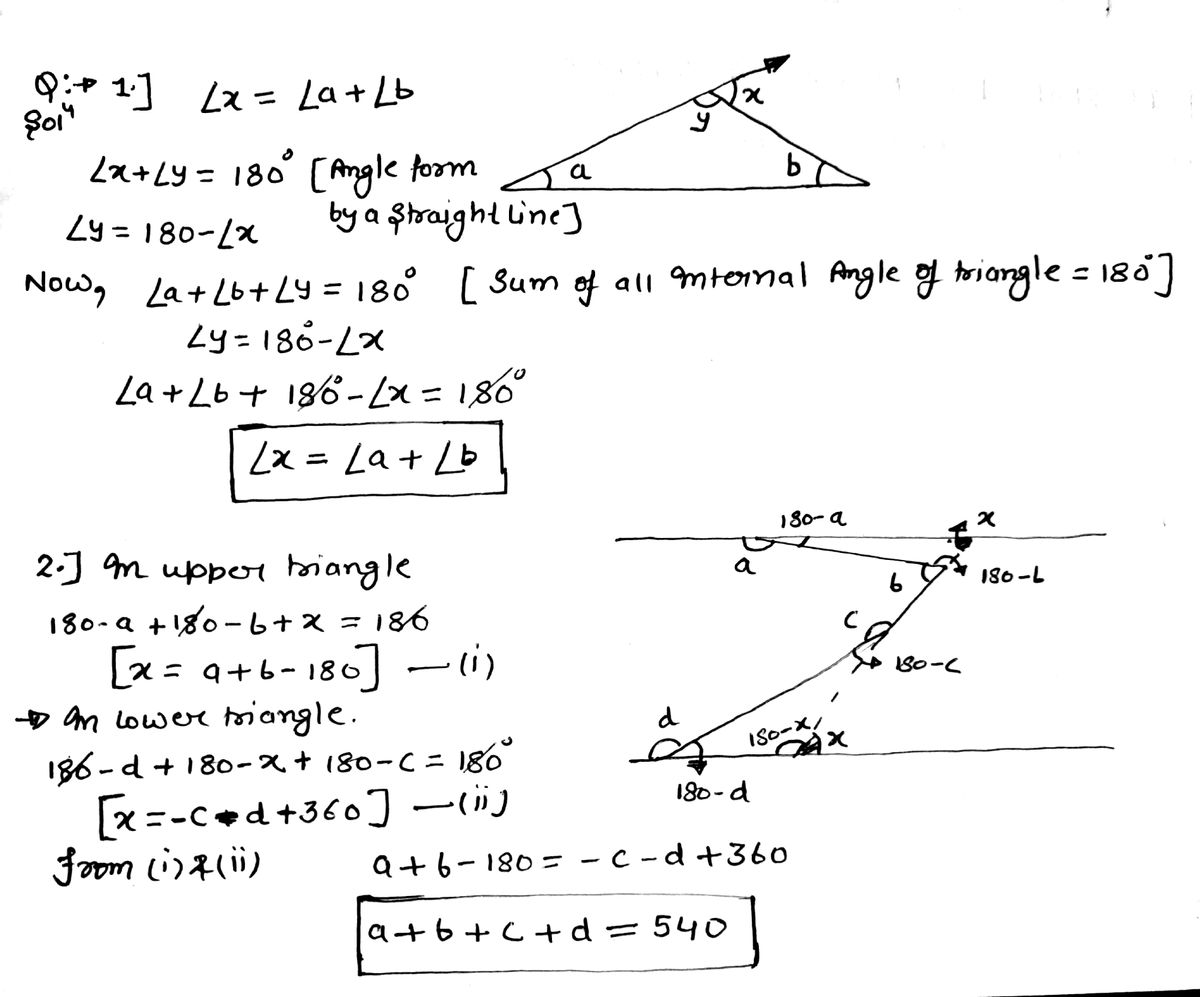 Q:→ 1.] ∠x = ∠a + ∠b
Solⁿ
∠x + ∠y = 180° [Angle form
by a straight line]
∠y = 180 - ∠x
Now, ∠a + ∠b + ∠y = 180° [Sum of all internal Angle of triangle = 180°]
∠y = 180° - ∠x
∠a + ∠b + 180° - ∠x = 180°
∠x = ∠a + ∠b
x
y
a
b
2.] In upper triangle
180 - a + 180 - b + x = 180
[x = a + b - 180] — (i)
→ In lower triangle.
180 - d + 180 - x + 180 - c = 180°
[x = -c - d + 360] — (ii)
from (i) & (ii) a + b - 180 = -c - d + 360
a + b + c + d = 540
180-a
x
a
b
180-b
c
180-c
d
180-x
x
180-d